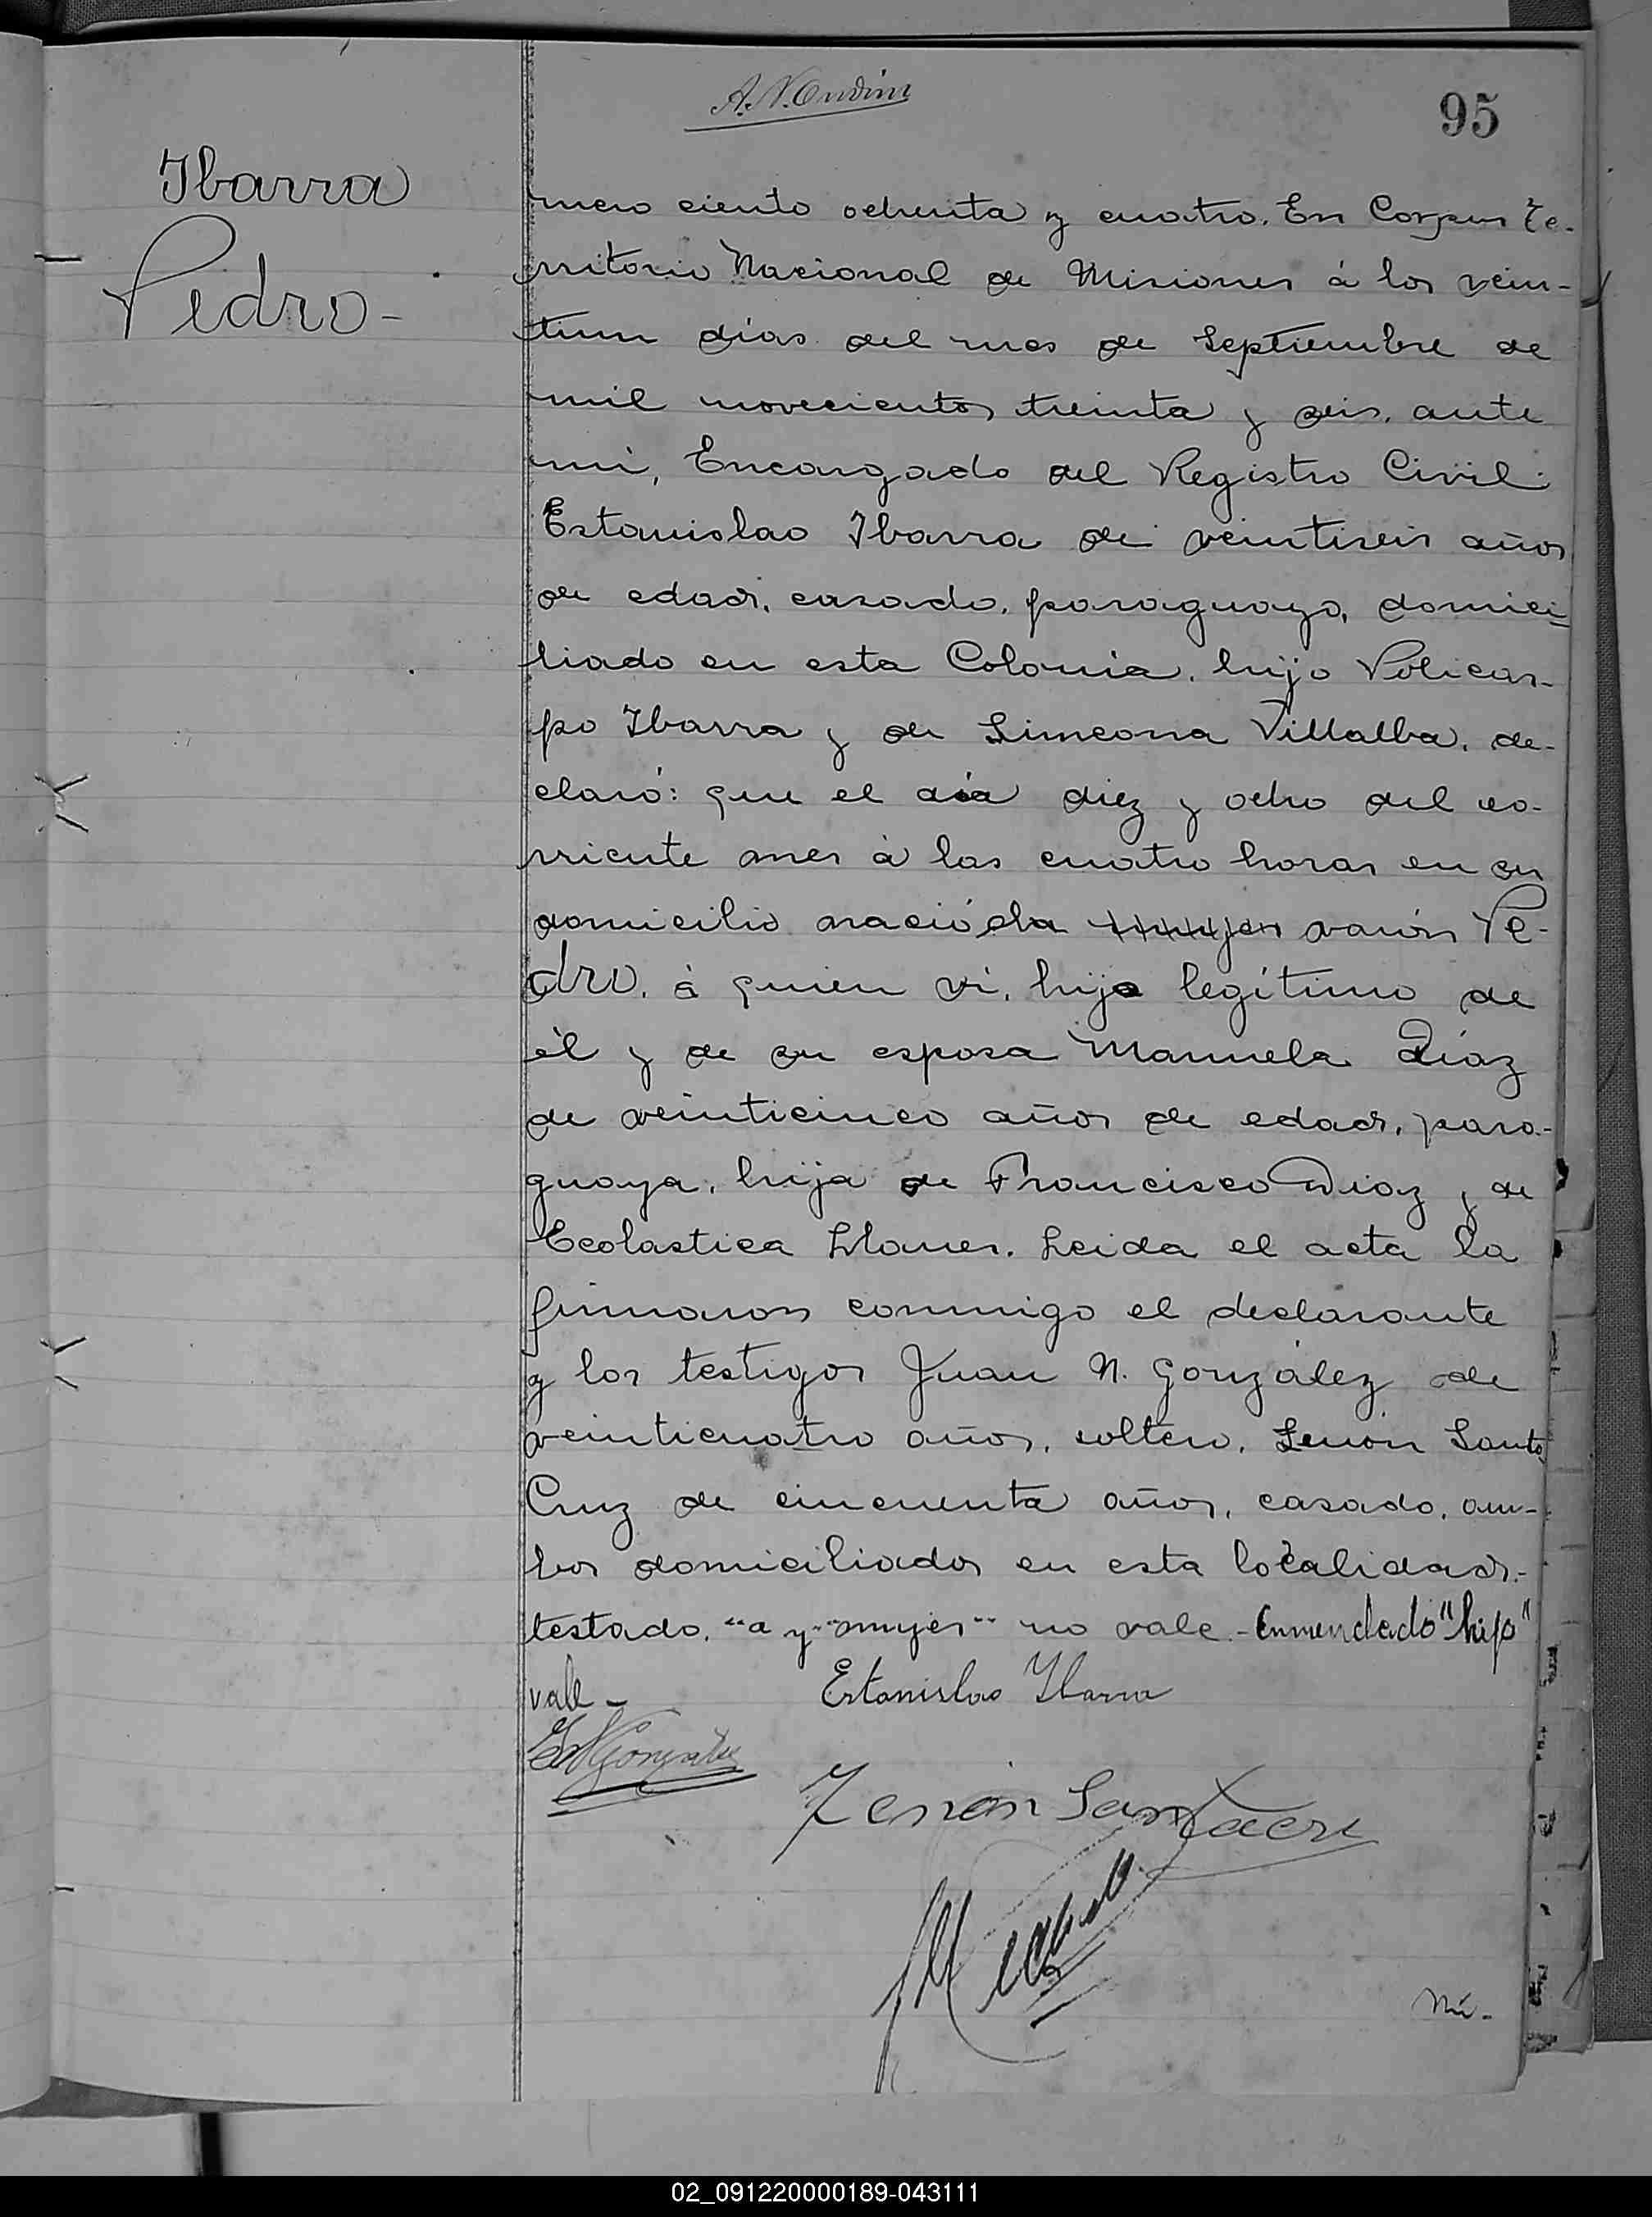 95
Ibarra
Pedro-
mero ciento ochenta y cuatro. En Corpus Te-
rritorio Nacional de Misiones á los vein-
tiun días del mes de Septiembre de
mil novecientos treinta y seis, ante
mí, Encargado del Registro Civil:
Estanislao Ibarra de veintiseis años
de edad, casado, paraguayo, domici-
liado en esta Colonia, hijo Policar-
po Ibarra y de Simeona Villalba, de-
claró: que el día diez y ocho del co-
rriente mes á las cuatro horas en su
domicilio nació el a mujer varón Pe-
dro, á quien vi, hijo legítimo de
él y de su esposa Manuela Díaz
de veinticinco años de edad, para-
guaya, hija de Francisco Diaz y de
Ecolastica Llanes. Leida el acta la
firmaron conmigo el declarante
y los testigos Juan N. González de
veinticuatro años, soltero, Zenón Santa
Cruz de cincuenta años, casado, am-
bos domiciliados en esta localidad.-
testado, "a y "mujer" no vale.- Enmendado "hijo"
vale-
Estanislao Ibarra
JN Gonzalez
Zenón Santacru
Nú-
02_091220000189-043111